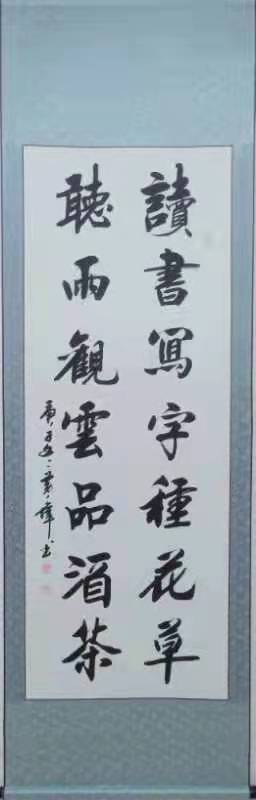 讀書寫字種花草
聽雨觀雲品酒茶
庚子